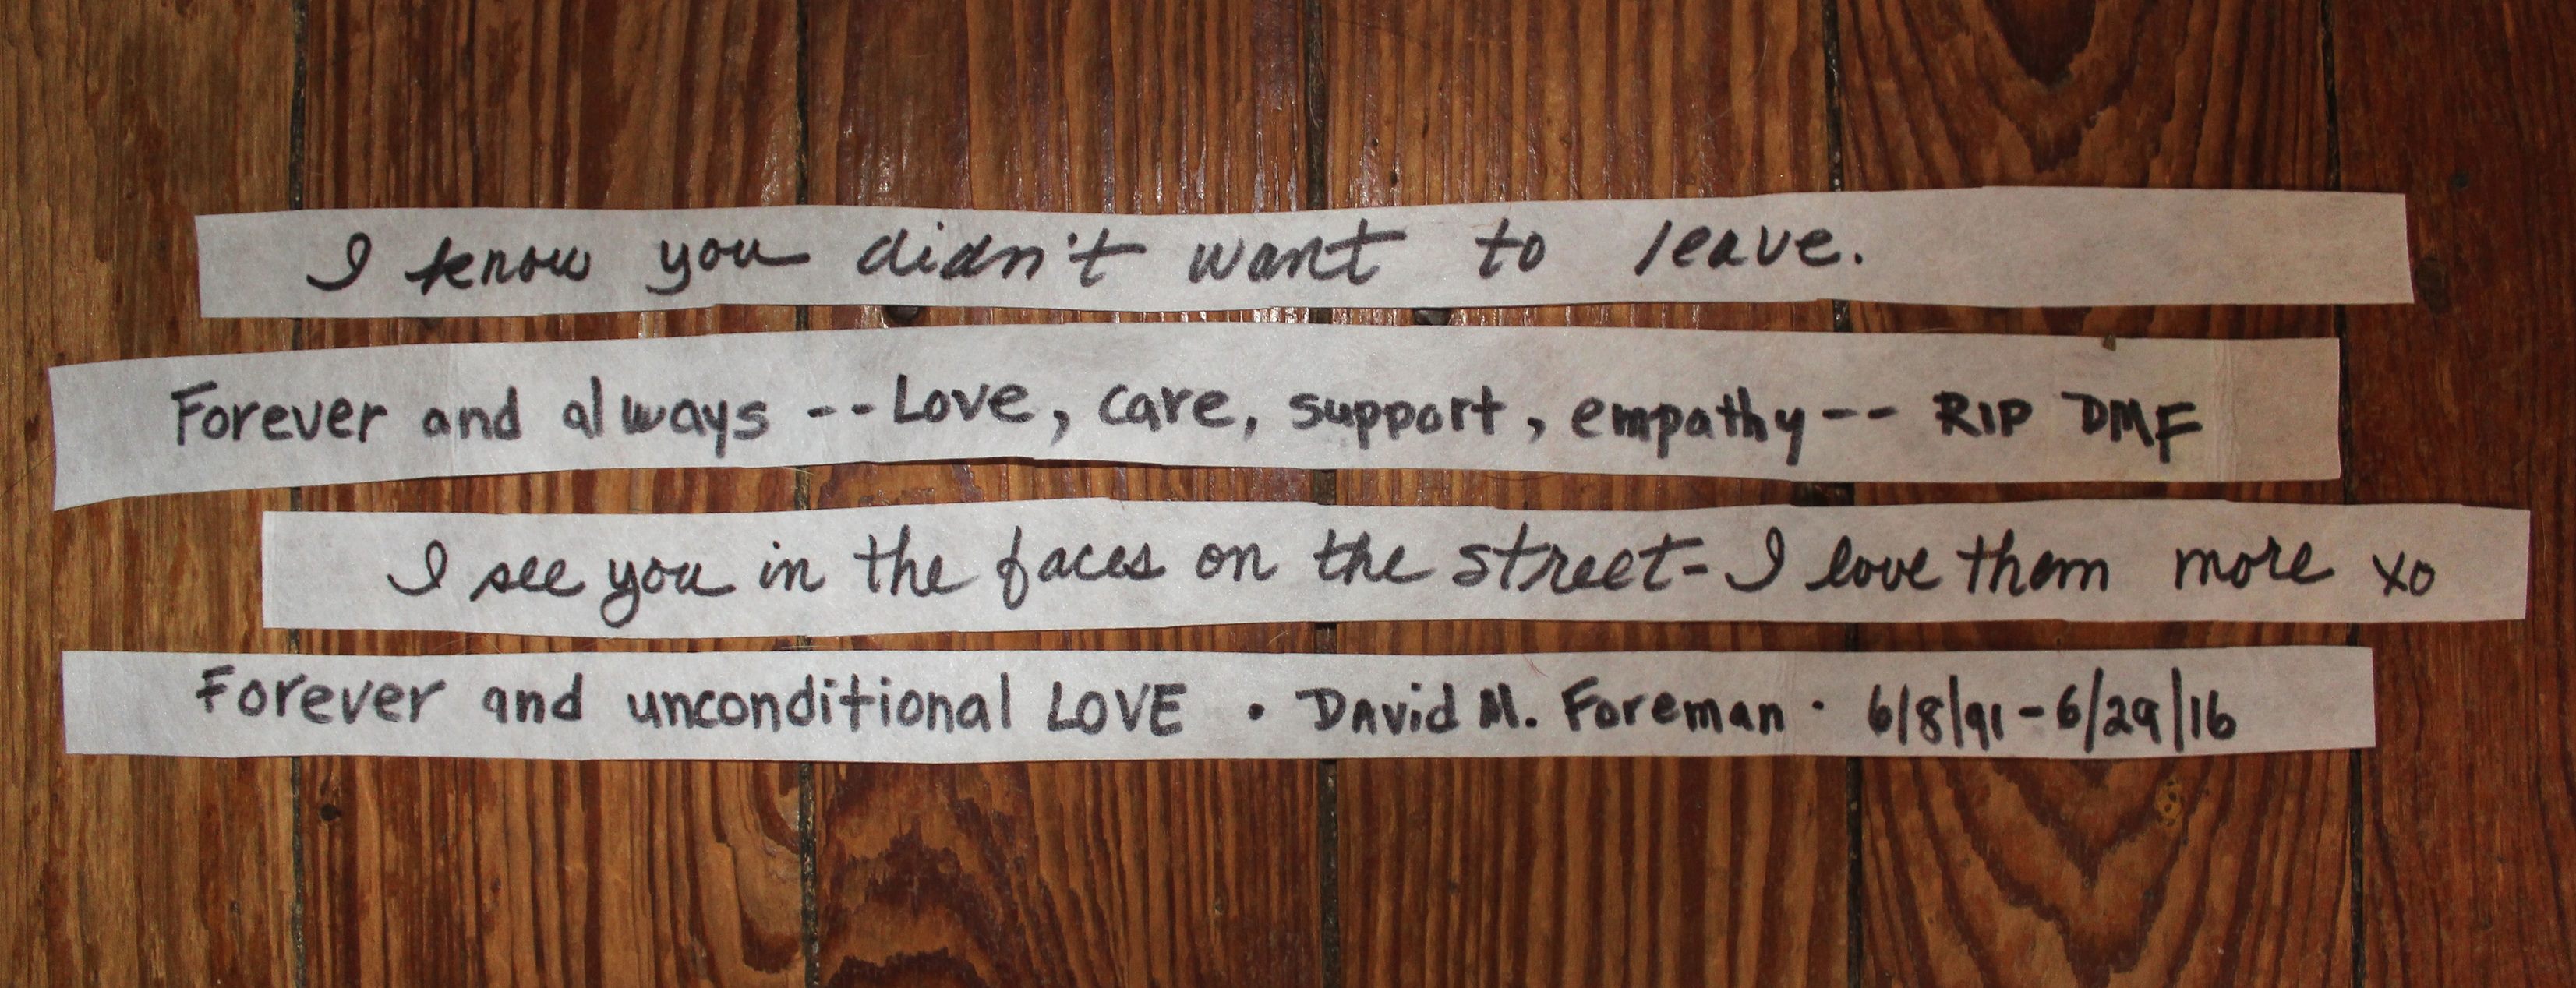 I know you didn't want to leave.
Forever and always -- Love, care, support, empathy -- RIP DMF
I see you in the faces on the street - I love them more xo
Forever and unconditional LOVE • David M. Foreman • 6/8/91 - 6/29/16